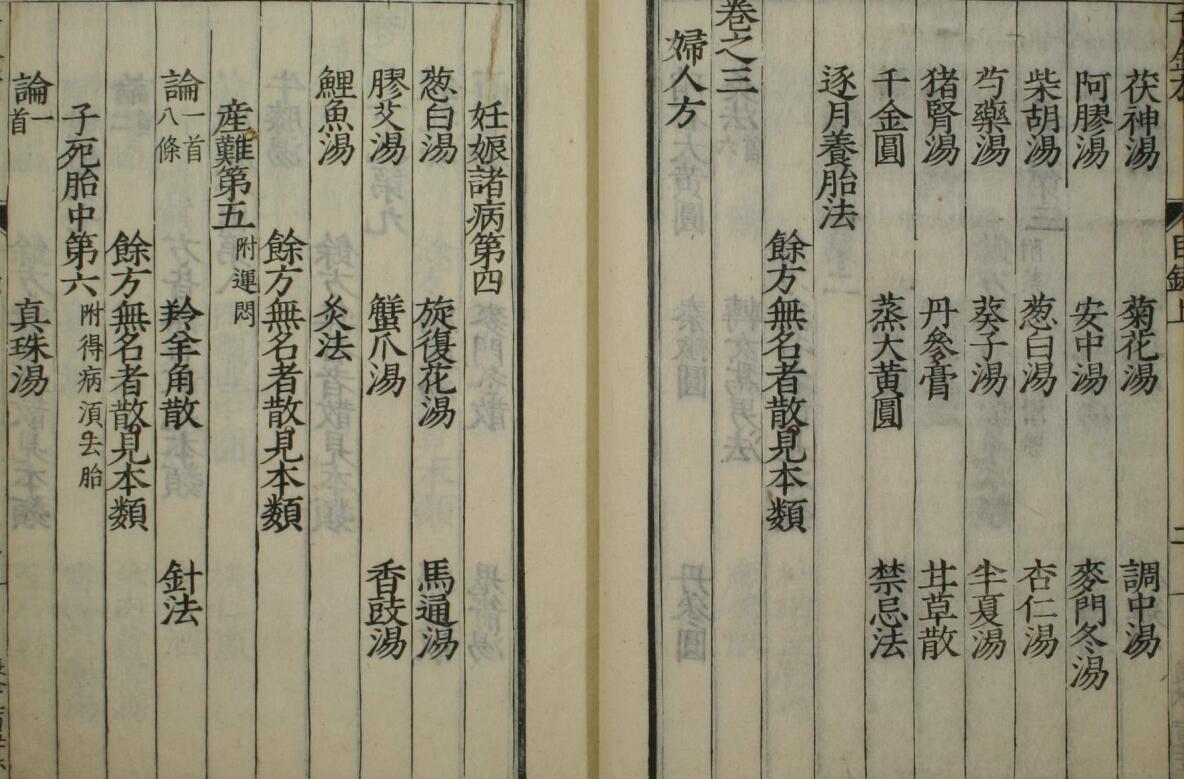 茯神湯 菊花湯 調中湯
阿膠湯 安中湯 麥門冬湯
柴胡湯 葱白湯 杏仁湯
芍藥湯 葵子湯 半夏湯
猪腎湯 丹參膏 甘草散
千金圓 蒸大黃圓 禁忌法
逐月養胎法
餘方無名者散見本類
卷之三
婦人方
妊娠諸病第四
葱白湯 旋復花湯 馬通湯
膠艾湯 蟹爪湯 香豉湯
鯉魚湯 灸法
餘方無名者散見本類
產難第五 附運悶
論一首八條 羚羊角散 針法
餘方無名者散見本類
子死胎中第六 附得病須去胎
論一首 真珠湯